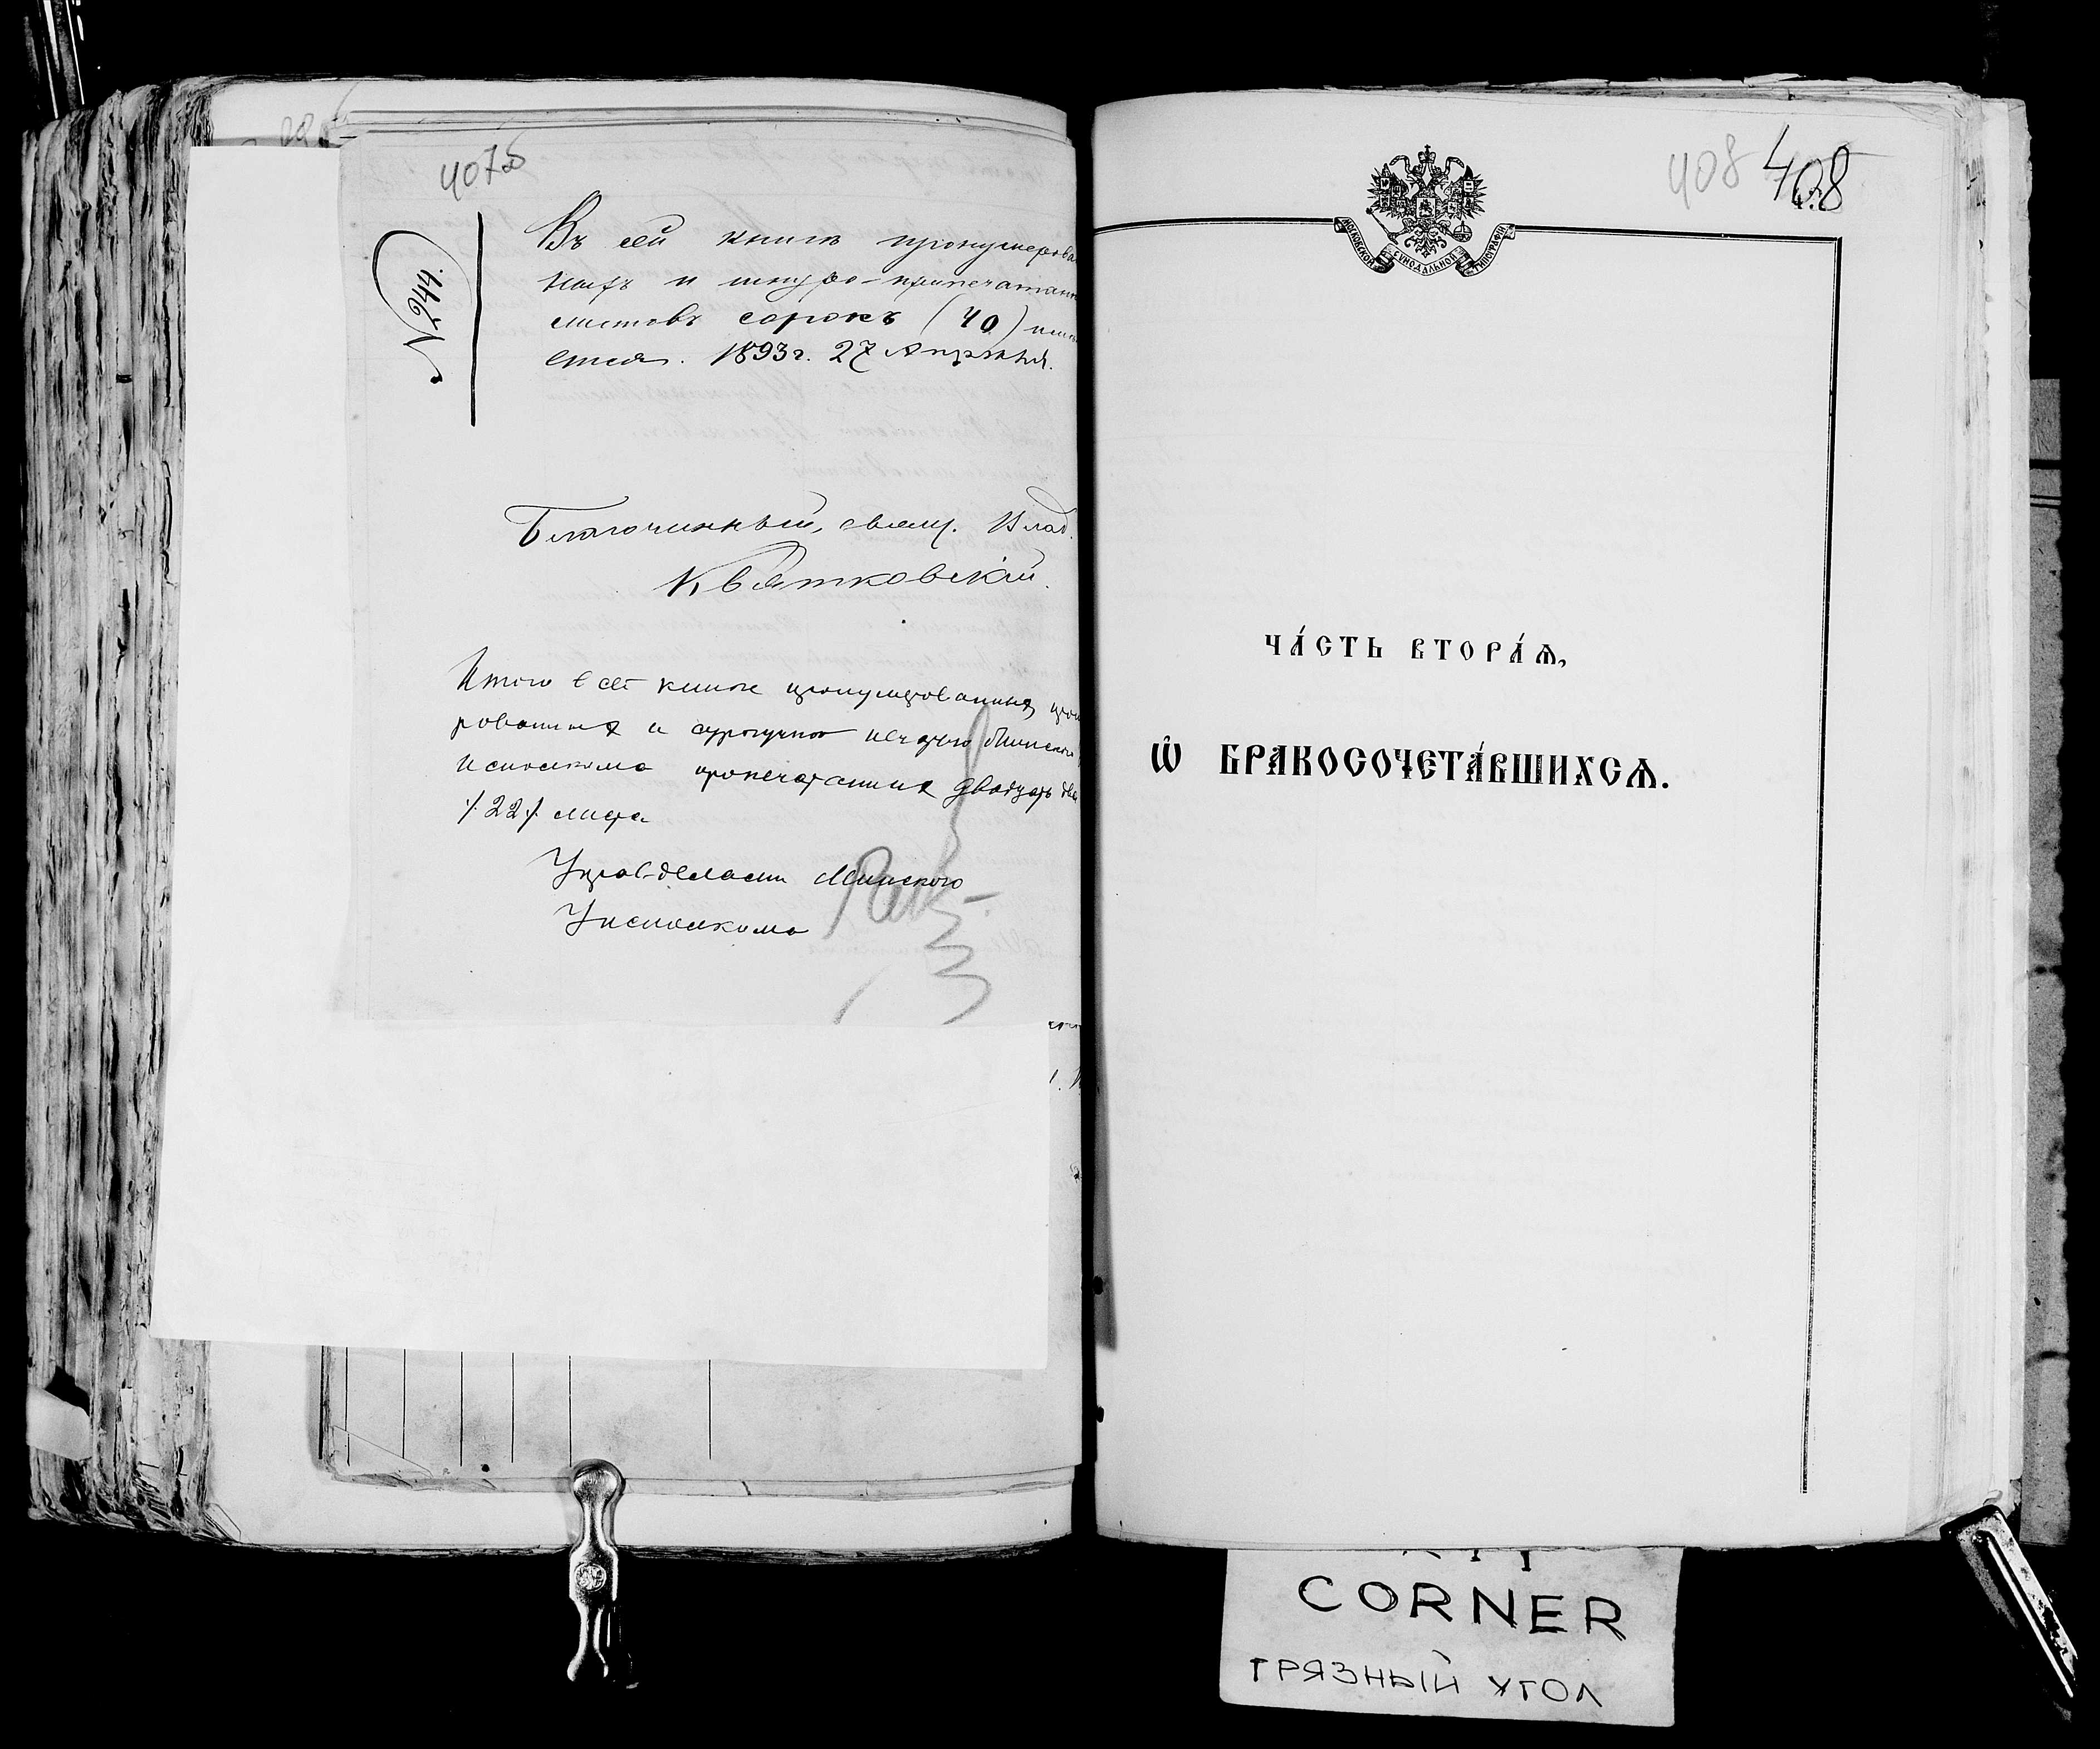 407об
№ 244.
Въ сей книгѣ пронумерова
ныхъ и шнуро-припечатан
листовъ сорокъ (40)
ется. 1893 г. 27 Апрѣля.
Благочинный, свящ. Влад.
Квятковскій.
Итого в сей книге пронумерованных,
рованных и сургучной печатью Минского
Исполкома пропечатанных двадцать два
/22/ листа
Управделами Минского
Уисполкома
408 408
МОСКОВСКОЙ СѴНОДАЛЬНОЙ ТИПОГРАФІИ
ЧА́СТЬ ВТОРА́Ѧ,
Ѽ БРАКОСОЧЕТА́ВШИХСѦ.
CORNER
ГРЯЗНЫЙ УГОЛ